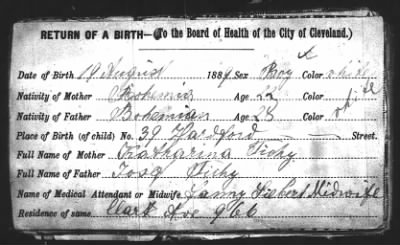 RETURN OF A BIRTH—(To the Board of Health of the City of Cleveland.)
Date of Birth 19 August 1889 Sex Boy Color white
Nativity of Mother Bohemia Age 22
Nativity of Father Bohemian Age 28 Color white
Place of Birth (of child) No. 39 Street.
Full Name of Mother Katharina Tichy
Full Name of Father Tichy
Name of Medical Attendant or Midwife Fanny Midwife
Residence of same Clark Ave 960